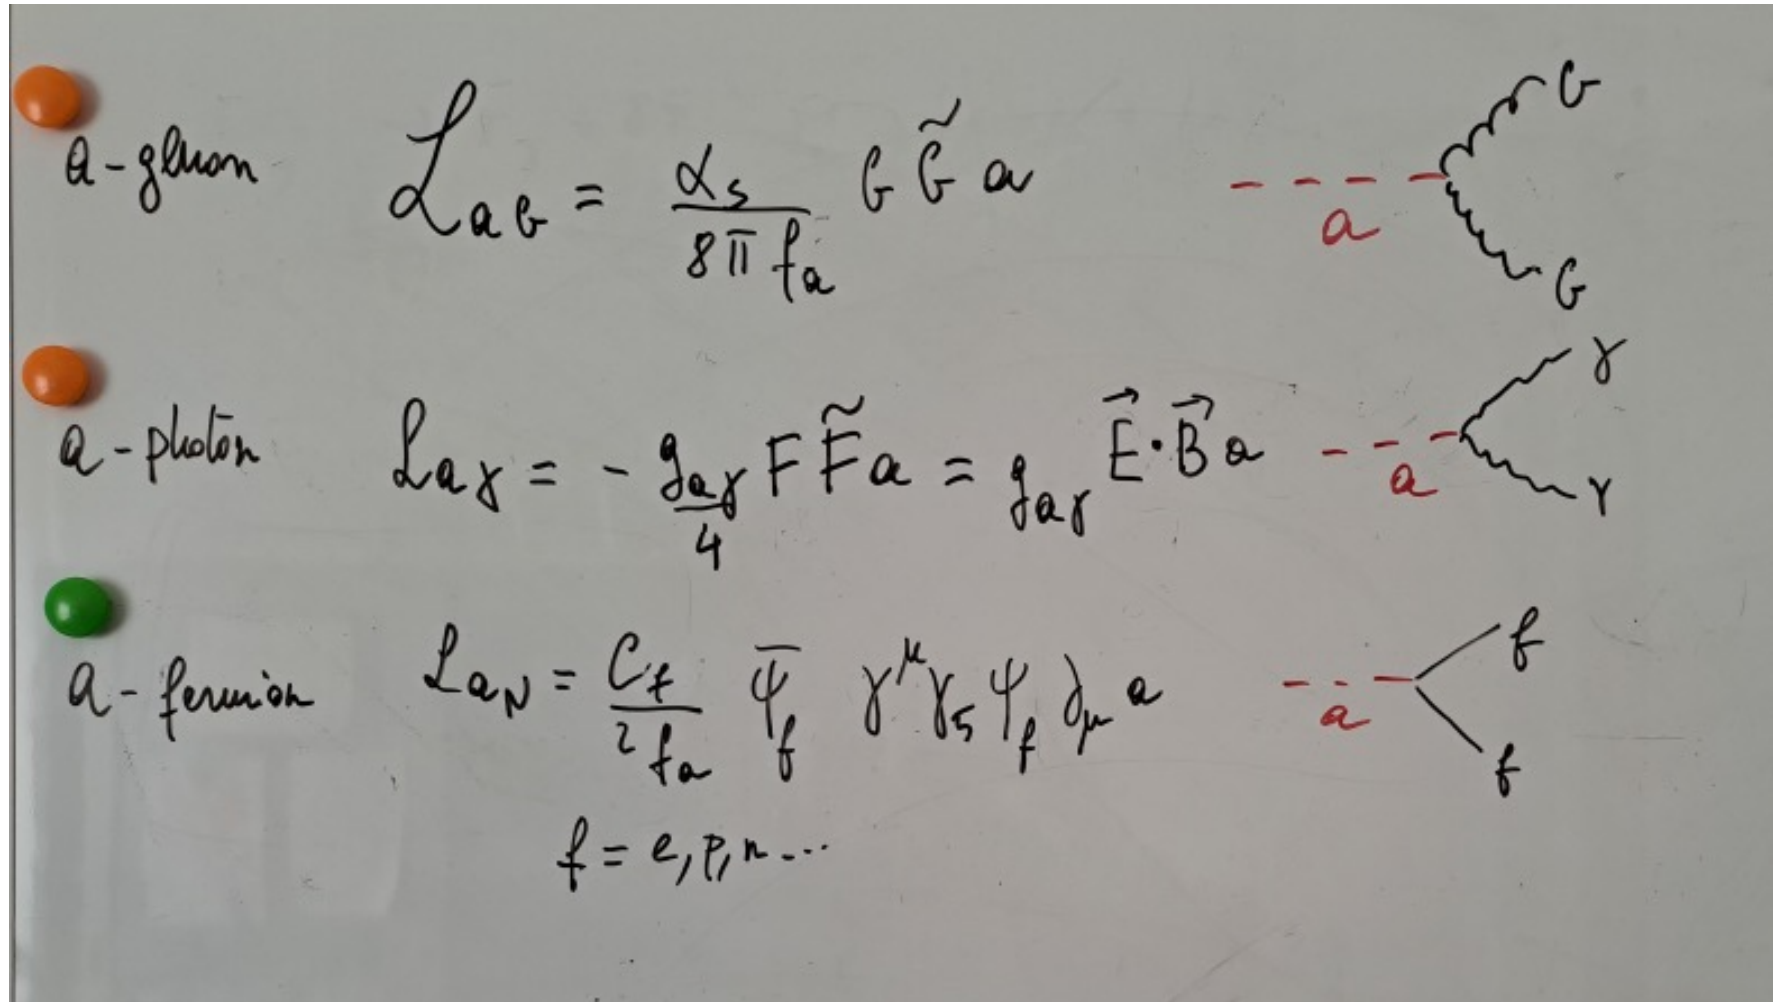 a-gluon ℒ_aG = α_s / 8π f_a G G̃ a
a G G
a-photon ℒ_aγ = - g_aγ / 4 F F̃ a = g_aγ E⃗·B⃗ a
a γ γ
a-fermion ℒ_aN = C_f / 2 f_a ψ̄_f γ^μ γ_5 ψ_f ∂_μ a
a f f
f = e, p, n ...